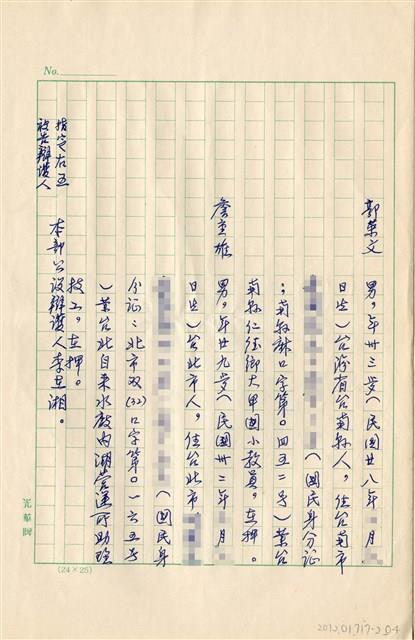 No.
郭榮文 男,年卅三歲(民國廿八年 月
日生)台灣省台南縣人,住台南市
(國民身分證
:南縣麻口字第。四五二号)業台
南縣仁德鄉大甲國小教員,在押。
詹重雄 男,年廿九歲(民國卅二年 月
日生)台北市人,住台北市
(國民身
分証:北市双(32)口字第。一六五号
)業台北自來水廠內湖營運所助理
技工,在押。
指定右五
被告辯護人 本部公設辯護人李 湘。
光華牌
(24×25)
2012.01.717-2 04